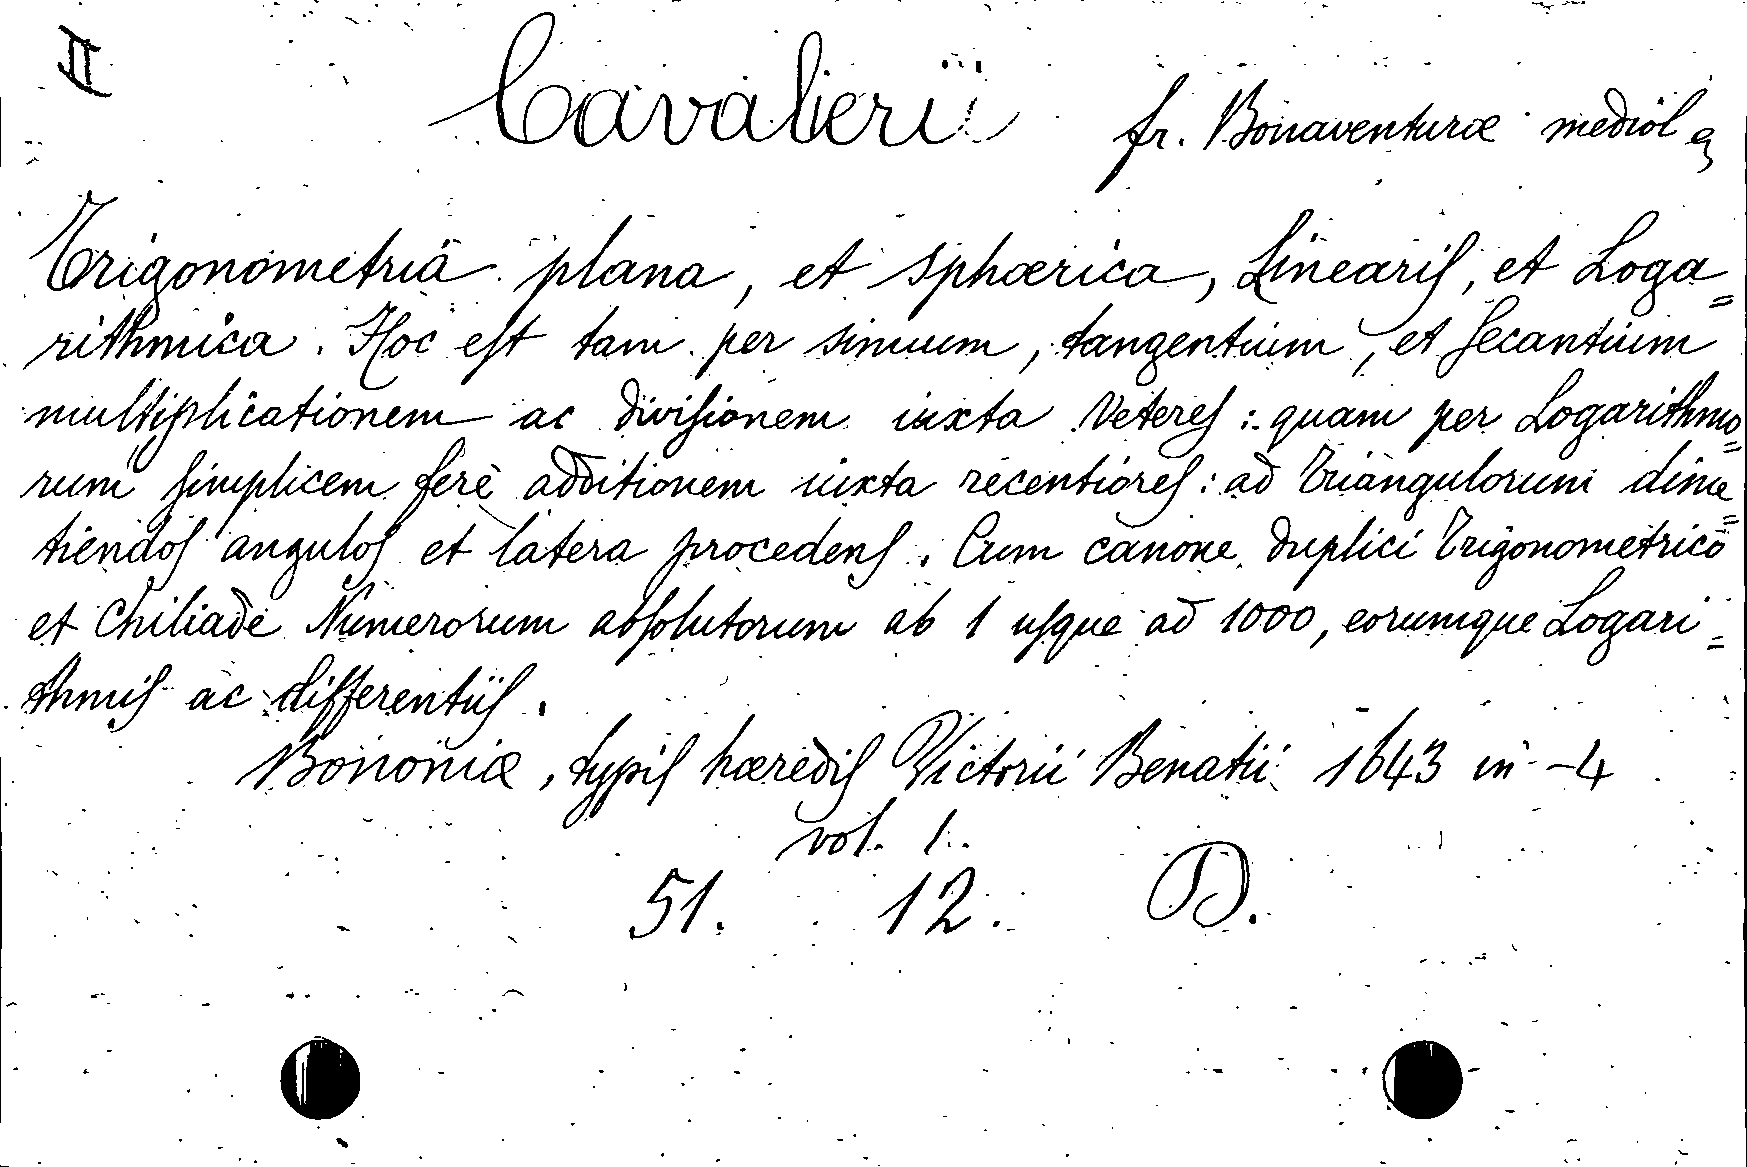 II
Cavalerii fr. Bonaventuræ mediol
Trigonometria plana, et sphærica, Lineariſ, et Loga=
rithmica. Hoc eſt tam per sinuum, tangentium, et ſecantium
multiplicationem ac diviſionem iuxta Vetereſ: quam per Logarithmo=
rum ſimplicem ferè additionem iuxta recentioreſ: ad Triangulorum dime=
tiendoſ anguloſ et latera procedenſ. Cum canone duplici Trigonometrico
et Chiliade Numerorum abſolutorum ab 1 uſque ad 1000, eorumque Logari=
thmiſ ac differentiiſ.
Bononiæ, typiſ hærediſ Victorii Benatii 1643 in-4
vol. 1.
51. 12. D.